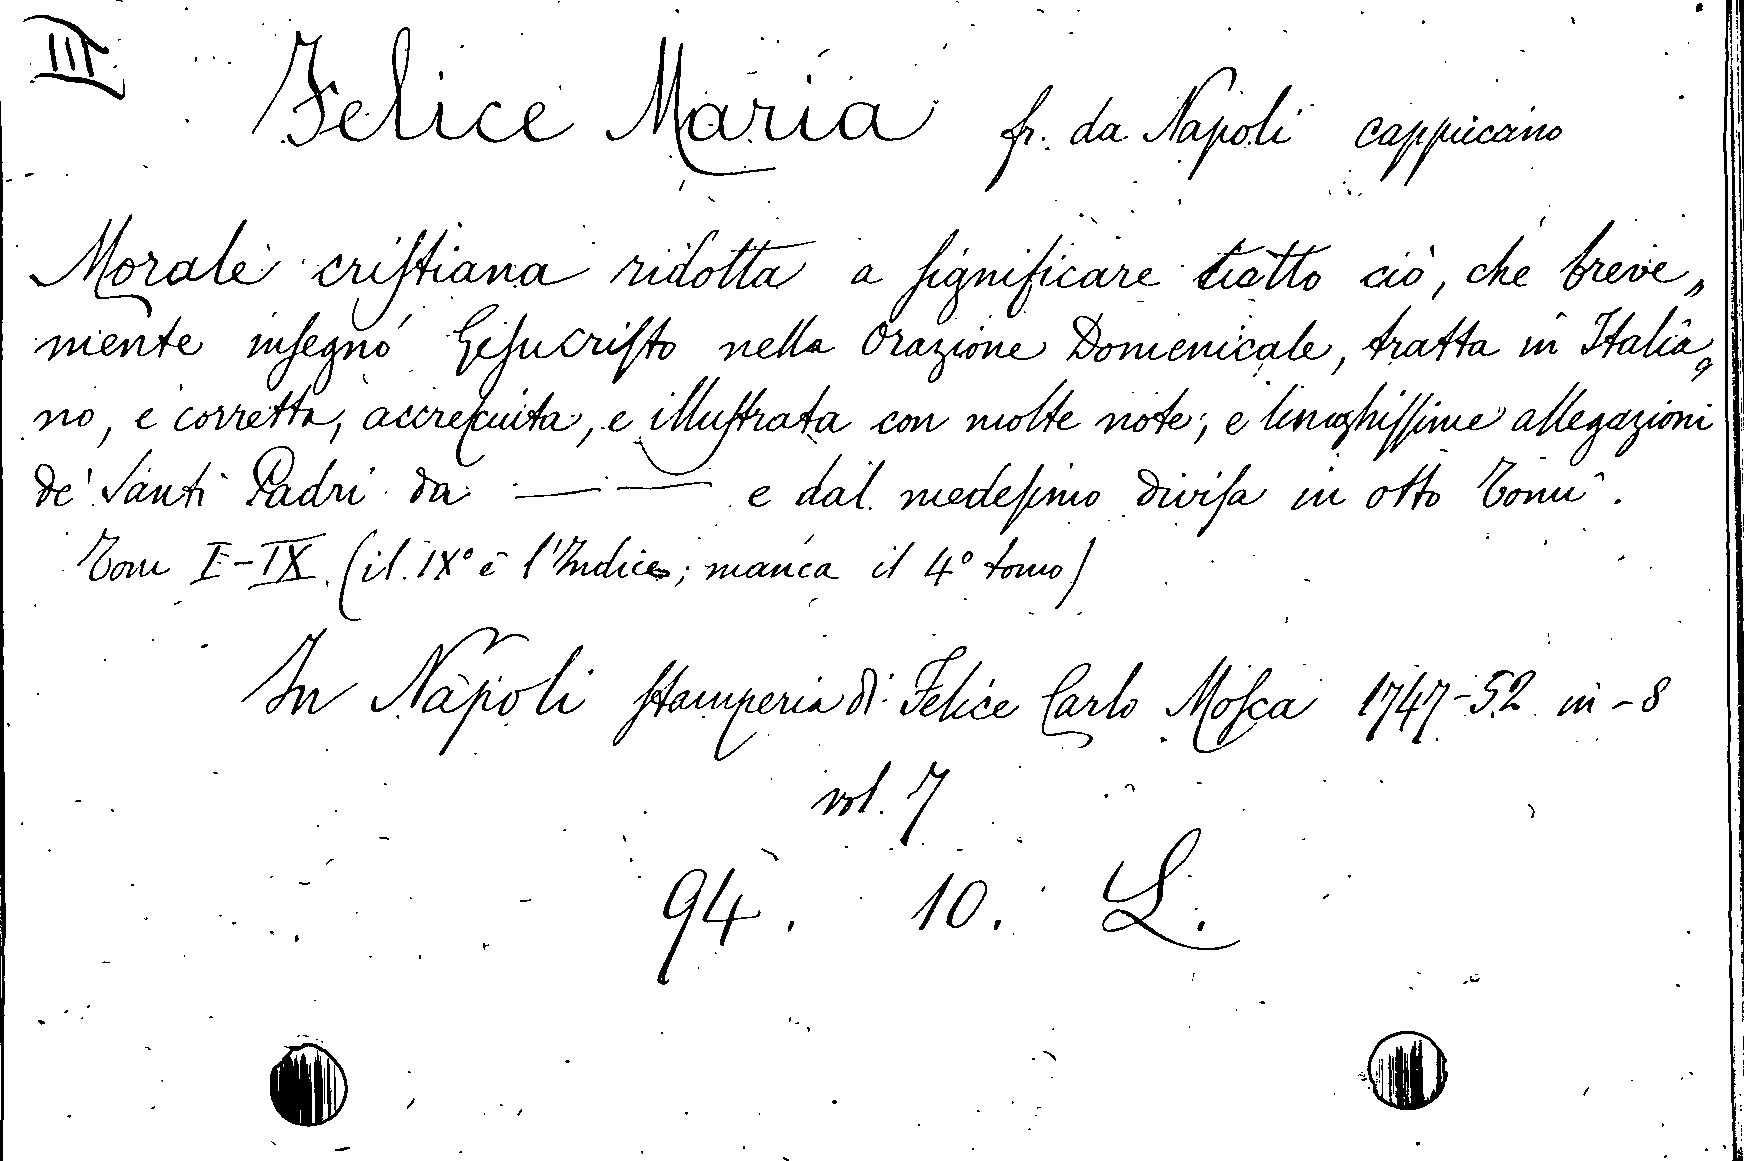 III
Felice Maria fr. da Napoli cappuccino
Morale cristiana ridotta a significare tutto ciò, che breve„
mente insegnò Gesucristo nella Orazione Domenicale, tratta in Italia„
no, e corretta, accresciuta, e illustrata con molte note; e lunghissime allegazioni
de' Santi Padri da — — e dal medesimo divisa in otto Tomi.
Tom I-IX (il IX° è l'Indice; manca il 4° tomo)
In Napoli stamperia di Felice Carlo Mosca 1747-52 in-8
vol. 7
94. 10. L.